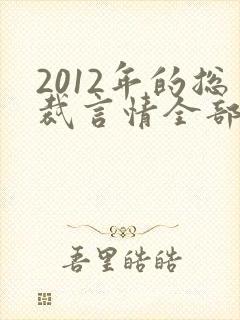 2012年的总
裁言情全部
吾里皓皓